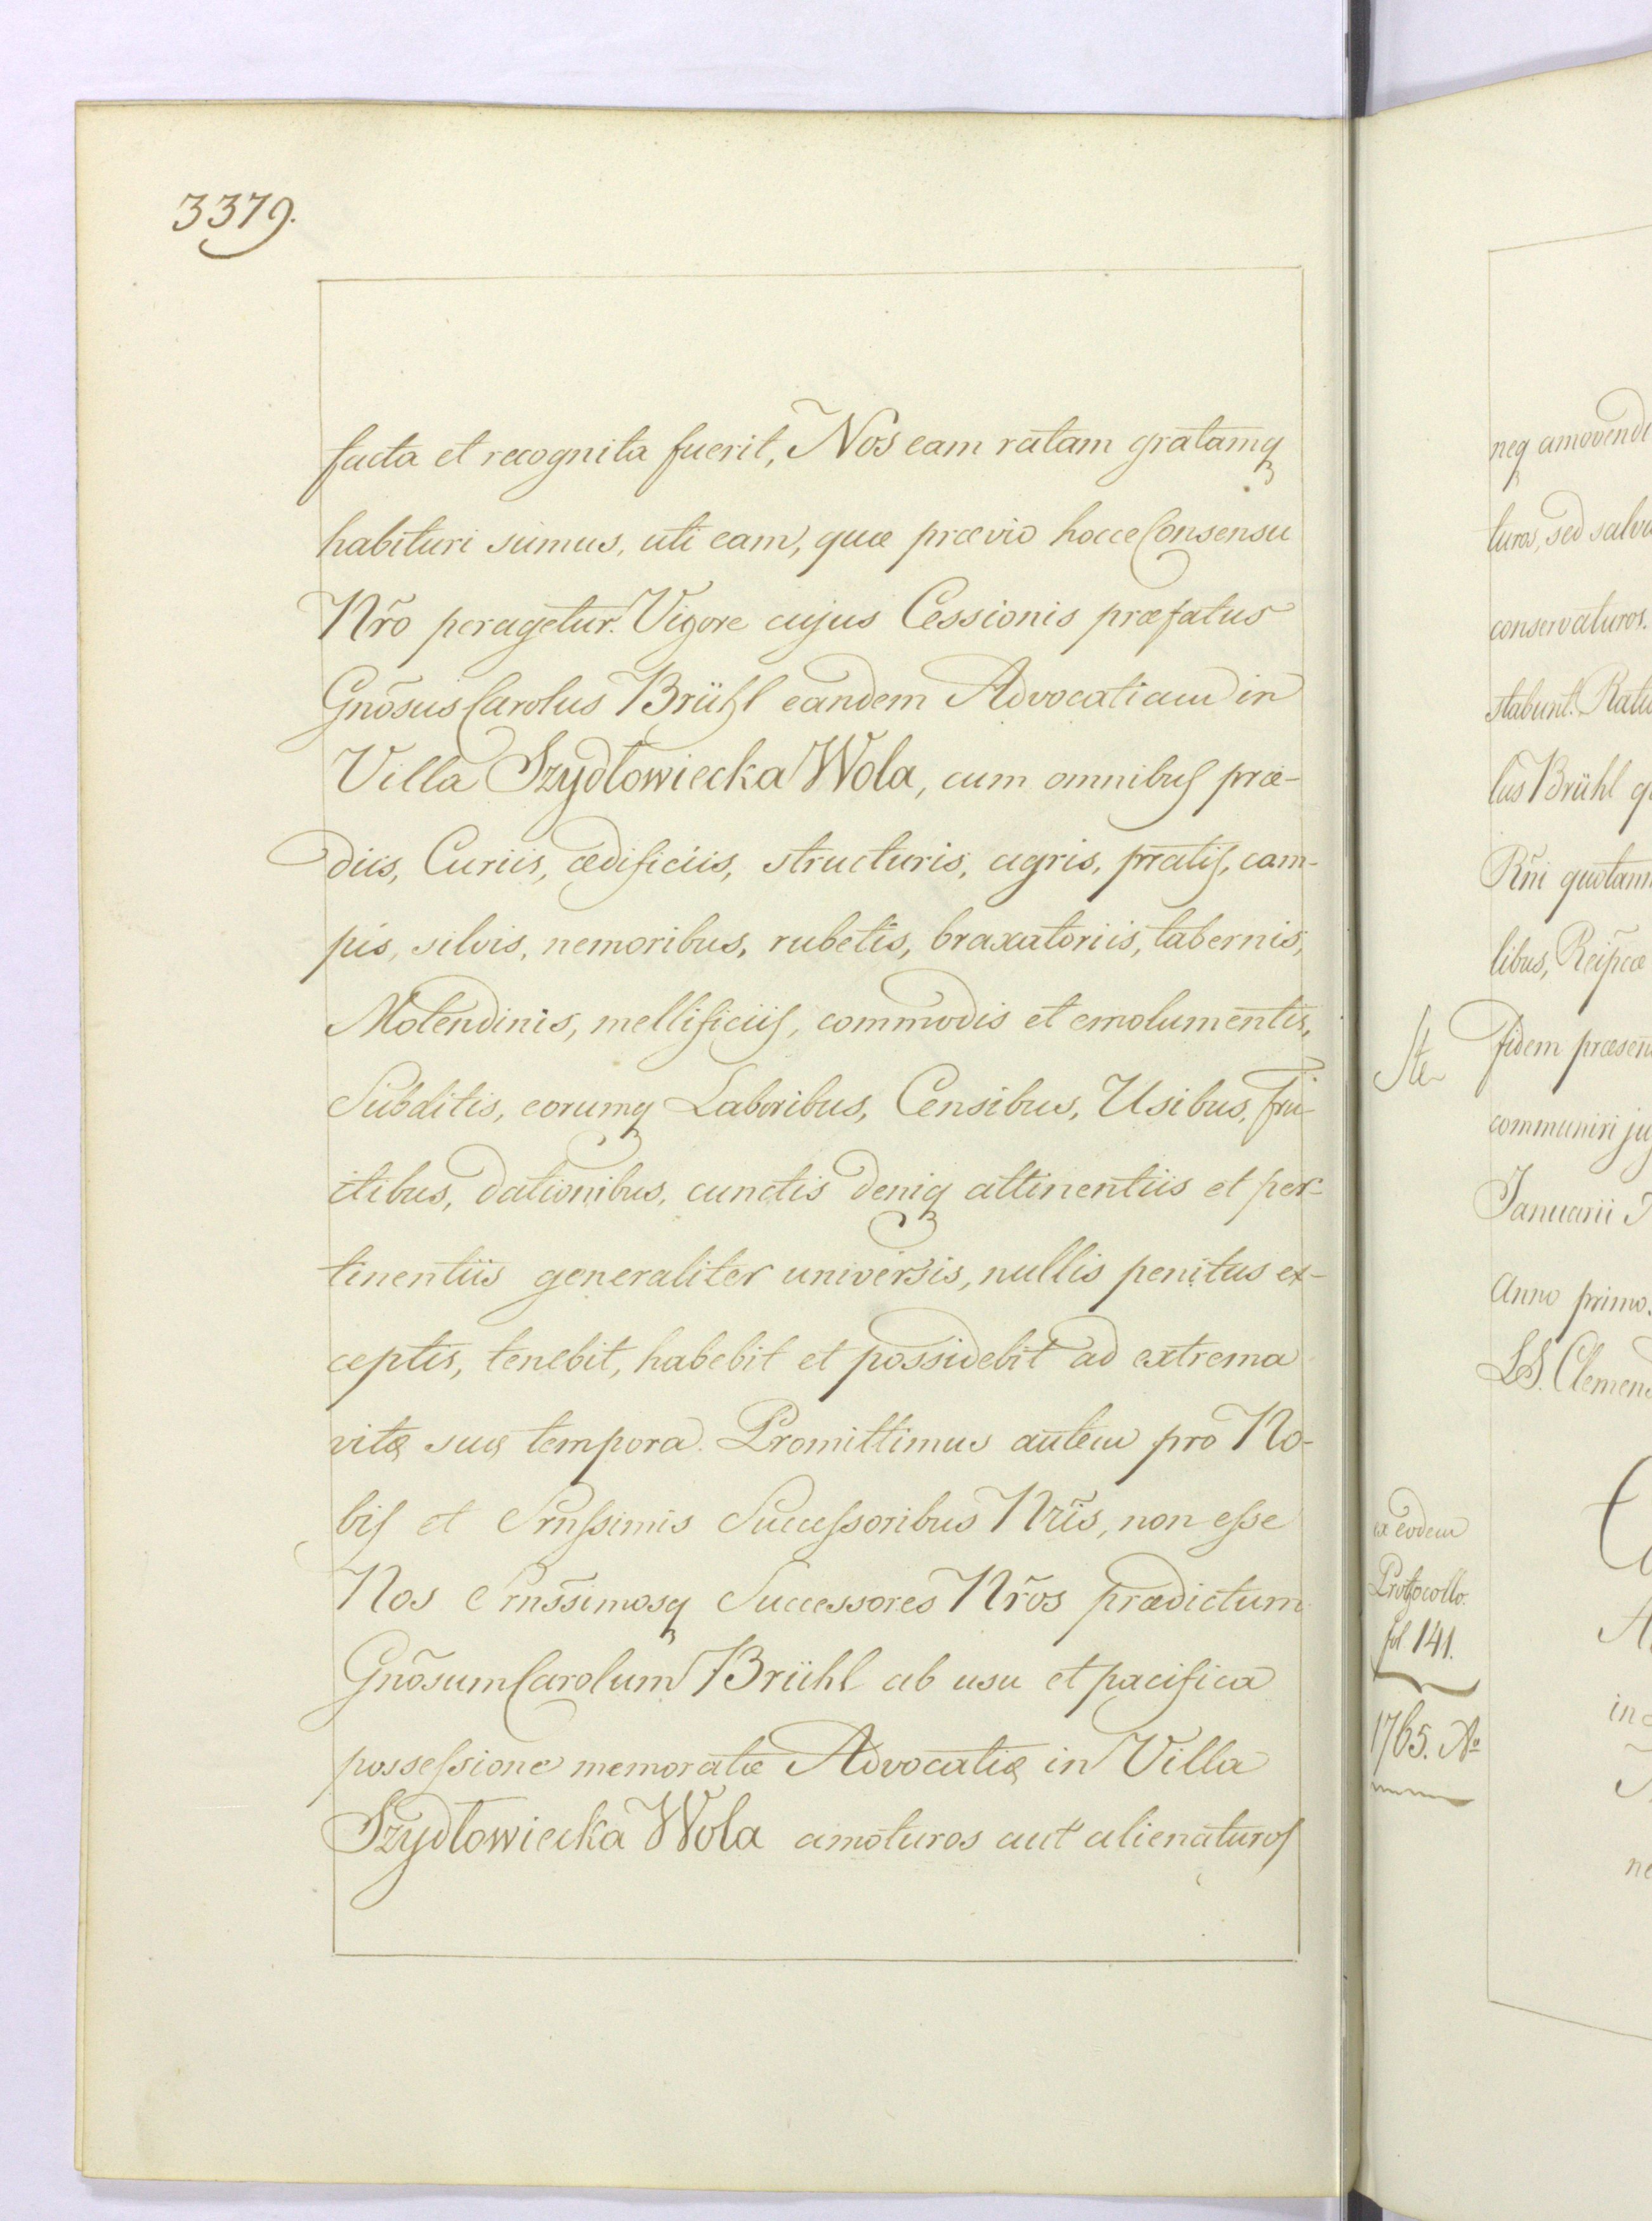 3379.
facta et recognita fuerit, Nos eam ratam gratamq
habituri sumus, uti eam, quæ prævio hocce Consensu
Nr̃o peragetur. Vigore cujus Cessionis præfatus
Gnõsus Carolus Brühl eandem Advocatiam in
Villa Szydłowiecka Wola, cum omnibus præ-
diis, Curiis, ædificiis, structuris, agris, pratis, cam-
pis, silvis, nemoribus, rubetis, braxatoriis, tabernis,
Molendinis, mellificiis, commodis et emolumentis,
Subditis, eorumq Laboribus, Censibus, Usibus, fru-
ctibus, dationibus, cunctis deniq attinentiis et per-
tinentiis generaliter universis, nullis penitus ex-
ceptis, tenebit, habebit et possidebit ad extrema
vitæ suæ tempora. Promittimus autem pro No-
bis et Srñssimis Successoribus Nr̃is, non esse
Nos Srñssimosq Successores Nr̃os prædictum
Gnõsum Carolum Brühl ab usu et pacifica
possessione memoratæ Advocatiæ in Villa
Szydłowiecka Wola amoturos aut alienaturos
neq amovendi
turos, sed salva
conservaturos.
stabunt. Ratu
lus Brühl q
Rñi quotann
libus, Reipcæ
fidem præsen
communiri ju
Januarii
Anno primo.
LS. Clemens
ex eodem
Protocollo.
fol 141.
1765. Ao
in
ne